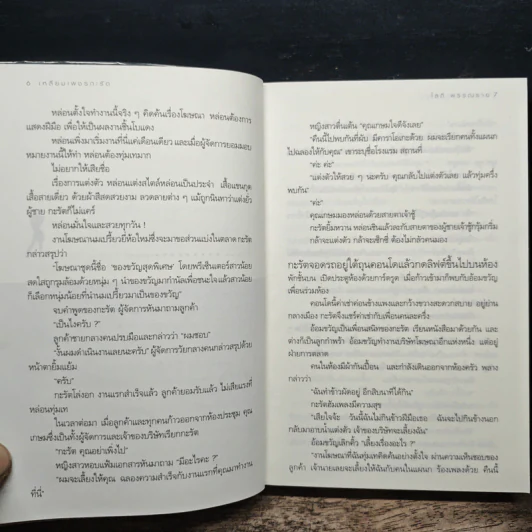 6 เหลี่ยมเพชรกะรัต
หล่อนตั้งใจทำงานนี้จริง ๆ คิดค้นเรื่องโฆษณา หล่อนต้องการ
แสดงฝีมือ เพื่อให้เป็นผลงานชิ้นโบแดง
หล่อนเพิ่งมาเริ่มงานที่นี่แค่เดือนเดียว และเมื่อผู้จัดการยอมมอบ
หมายงานนี้ให้ทำ หล่อนต้องทุ่มเทมาก
ไม่อยากให้เสียชื่อ
เรื่องการแต่งตัว หล่อนแต่งสไตล์หล่อนเป็นประจำ เสื้อแขนกุด
เสื้อสายเดี่ยว ด้วยผ้าสีสดสวยงาม ลวดลายต่าง ๆ แม้ถูกนินทาว่าแต่งยั่ว
ผู้ชาย กะรัตก็ไม่แคร์
หล่อนมั่นใจและสวยทุกวัน !
งานโฆษณานมเปรี้ยวยี่ห้อใหม่ซึ่งจะมาขอส่วนแบ่งในตลาด กะรัต
กล่าวสรุปว่า
"โฆษณาชุดนี้ชื่อ 'ของขวัญสุดพิเศษ' โดยพรีเซ็นเตอร์สาวน้อย
สดใสถูกรุมล้อมด้วยหนุ่ม ๆ นำของขวัญมากำนัลเพื่อชนะใจ แล้วสาวน้อย
ก็เลือกหนุ่มน้อยที่นำนมเปรี้ยวมาเป็นของขวัญ"
จบคำพูดของกะรัต ผู้จัดการหันมาถามลูกค้า
"เป็นไงครับ ?"
ลูกค้าชายกลางคนปรบมือและกล่าวว่า "ผมชอบ"
"งั้นผมดำเนินงานเลยนะครับ" ผู้จัดการวัยกลางคนกล่าวสรุปด้วย
หน้าตายิ้มแย้ม
"ครับ"
กะรัตโล่งอก งานแรกสำเร็จแล้ว ลูกค้ายอมรับแล้ว ไม่เสียแรงที่
หล่อนทุ่มเท
ในเวลาต่อมา เมื่อลูกค้าและทุกคนก้าวออกจากห้องประชุม คุณ
เกษมซึ่งเป็นทั้งผู้จัดการและเจ้าของบริษัทเรียกกะรัต
"กะรัต คุณอย่าเพิ่งไป"
หญิงสาวหอบแฟ้มเอกสารหันมาถาม "มีอะไรคะ ?"
"ผมจะเลี้ยงให้คุณ ฉลองความสำเร็จกับงานแรกที่คุณมาทำงาน
ที่นี่"
โสภี พรรณราย 7
หญิงสาวตื่นเต้น "คุณเกษมใจดีจังเลย"
"คืนนี้ไปพบกันที่ผับ มีคาราโอเกะด้วย ผมจะเรียกคนทั้งแผนก
ไปฉลองให้กับคุณ" เขาระบุชื่อโรงแรม สถานที่
"ค่ะ ค่ะ"
"แต่งตัวให้สวย ๆ นะครับ คุณกลับไปแต่งตัวเลย แล้วทุ่มครึ่ง
พบกัน"
"ค่ะ"
คุณเกษมมองหล่อนด้วยสายตาเจ้าชู้
กะรัตยิ้มหวาน หล่อนชินแล้วละกับสายตาของผู้ชายเจ้าชู้กรุ้มกริ่ม
กล้าจะแต่งตัว ก็กล้าจะเซ็กซี่ ต้องไม่กลัวคนมอง
กะรัตจอดรถอยู่ใต้ถุนคอนโดแล้วกดลิฟต์ขึ้นไปบนห้อง
พักชั้นบน เปิดประตูห้องด้วยการ์ดรูด เมื่อก้าวเข้ามาก็พบกับอ้อมขวัญ
เพื่อนร่วมห้อง
คอนโดนี้ค่าเช่าค่อนข้างแพงและกว้างขวางสะดวกสบาย อยู่ย่าน
กลางเมือง กะรัตจึงแชร์ค่าเช่ากับเพื่อนคนละครึ่ง
อ้อมขวัญเป็นเพื่อนสนิทของกะรัต เรียนหนังสือมาด้วยกัน และ
ต่างก็เป็นลูกกำพร้า อ้อมขวัญทำงานบริษัทโฆษณาอีกแห่งหนึ่ง แต่อยู่
ฝ่ายการตลาด
คนในห้องมีผ้ากันเปื้อน และกำลังเดินออกจากห้องครัว พลาง
กล่าวว่า
"ฉันทำข้าวผัดอยู่ อีกสิบนาทีได้กิน"
กะรัตฮัมเพลงมีความสุข
"เสียใจจ้ะ วันนี้ฉันไม่กินข้าวฝีมือเธอ ฉันจะไปกินข้างนอก
กลับมาอาบน้ำแต่งตัว เจ้าของบริษัทจะเลี้ยงฉัน"
อ้อมขวัญเลิกคิ้ว "เลี้ยงเรื่องอะไร ?"
"งานโฆษณาที่ฉันทุ่มเทคิดค้นอย่างตั้งใจ ผ่านความเห็นชอบของ
ลูกค้า เจ้านายเลยจะเลี้ยงให้ฉันกับคนในแผนก ร้องเพลงด้วย คืนนี้